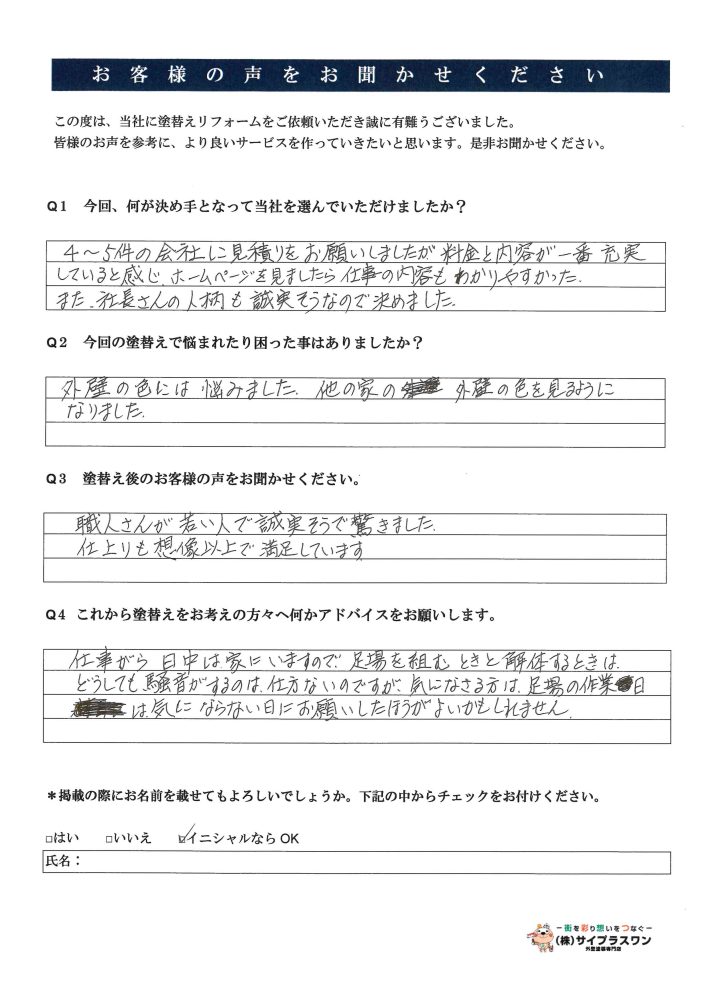 お客様の声をお聞かせください
この度は、当社に塗替えリフォームをご依頼いただき誠に有難うございました。
皆様のお声を参考に、より良いサービスを作っていきたいと思います。是非お聞かせください。
Q1 今回、何が決め手となって当社を選んでいただけましたか？
4～5件の会社に見積りをお願いしましたが料金と内容が一番充実
していると感じ、ホームページを見ましたら仕事の内容もわかりやすかった。
また、社長さんの人柄も誠実そうなので決めました。
Q2 今回の塗替えで悩まれたり困った事はありましたか？
外壁の色には悩みました。他の家の外壁の色を見るように
なりました。
Q3 塗替え後のお客様の声をお聞かせください。
職人さんが若い人で誠実そうで驚きました。
仕上りも想像以上で満足しています
Q4 これから塗替えをお考えの方々へ何かアドバイスをお願いします。
仕事がら日中は家にいますので、足場を組むときと解体するときは、
どうしても騒音がするのは、仕方ないのですが、気になさる方は、足場の作業日
は、気にならない日にお願いしたほうがよいかもしれません。
＊掲載の際にお名前を載せてもよろしいでしょうか。下記の中からチェックをお付けください。
□はい □いいえ ☑イニシャルならOK
氏名：
－街を彩り想いをつなぐ－
(株)サイプラスワン
外壁塗装専門店